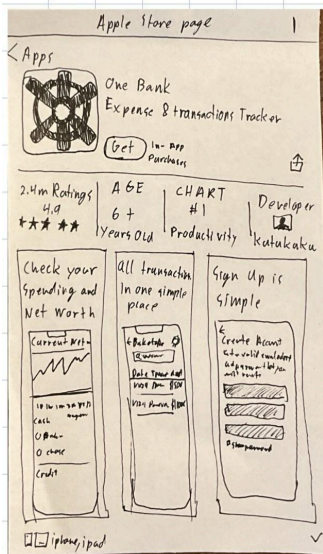 Apple Store page
< Apps
One Bank
Expense & transactions Tracker
Get
In-App
Purchases
2.4m Ratings
4,9
AGE
6+
Years Old
CHART
#1
Productivity
Developer
kutukaku
Check your
Spending and
Net Worth
Current Net
Cash
chase
Credit
All transaction
In one simple
place
Date Spent
Sign Up is
Simple
Create Account
iphone, ipad